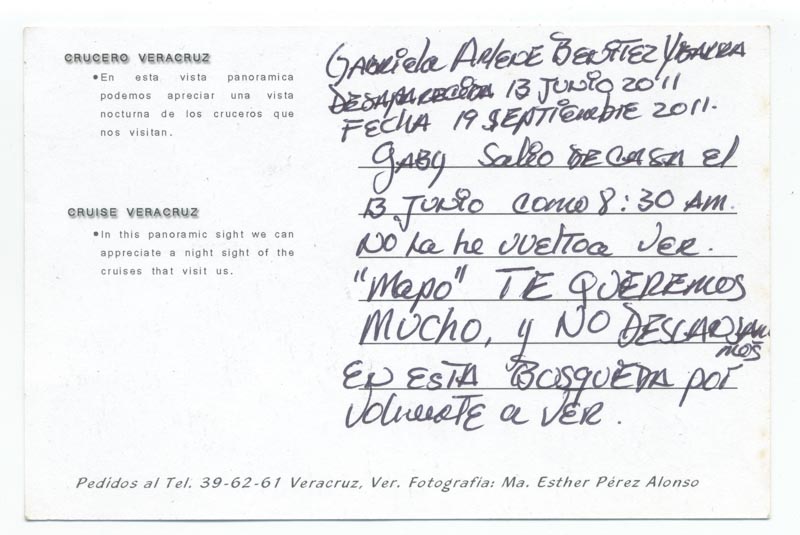 CRUCERO VERACRUZ
•En esta vista panoramica
podemos apreciar una vista
nocturna de los cruceros que
nos visitan.
CRUISE VERACRUZ
•In this panoramic sight we can
appreciate a night sight of the
cruises that visit us.
Gabriela Arlene Benitez Ybarra
DESAPARECIDA 13 JUNIO 2011
FECHA 19 SEPTIEMBRE 2011.
GABY Salio DE CASA el
13 JUNIO como 8:30 Am.
NO la he vuelto a VER.
"Mapo" TE QUEREMOS
MUCHO, y NO DESCANSAre
mos
EN ESTA BUSQUEDA por
volverte a VER.
Pedidos al Tel. 39-62-61 Veracruz, Ver. Fotografia: Ma. Esther Pérez Alonso